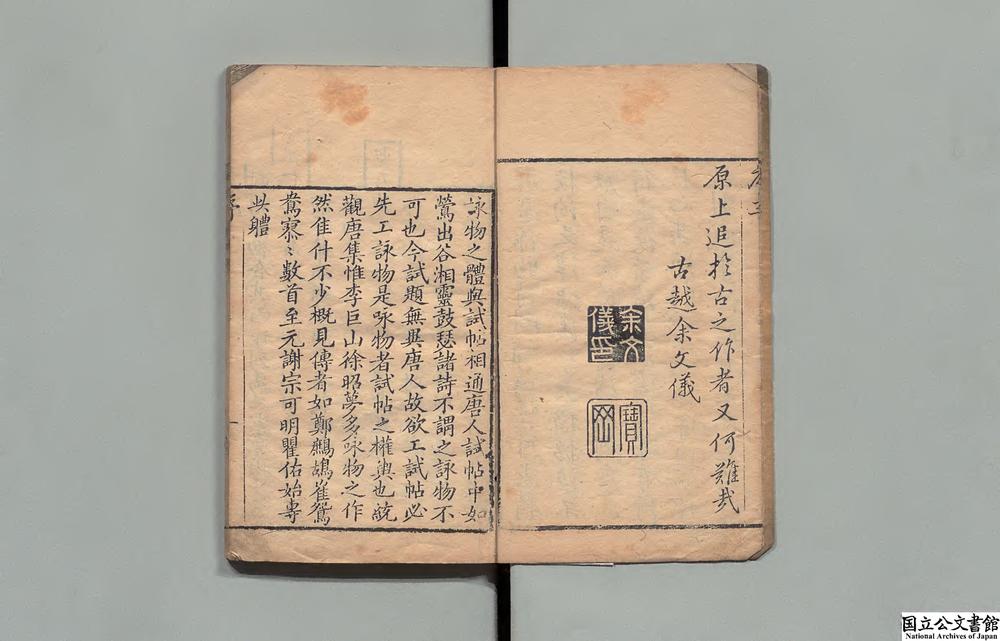 原上追於古之作者又何難哉
古越余文儀
余文儀印
寶岡
詠物之體與試帖相通唐人試帖中如
鶯出谷湘靈鼓瑟諸詩不謂之詠物不
可也今試題無異唐人故欲工試帖必
先工詠物是咏物者試帖之權輿也統
觀唐集惟李巨山徐昭夢多咏物之作
然佳什不少概見傳者如鄭鷓鴣崔鴛
鴦寥〻數首至元謝宗可明瞿佑始專
此體
国立公文書館
National Archives of Japan